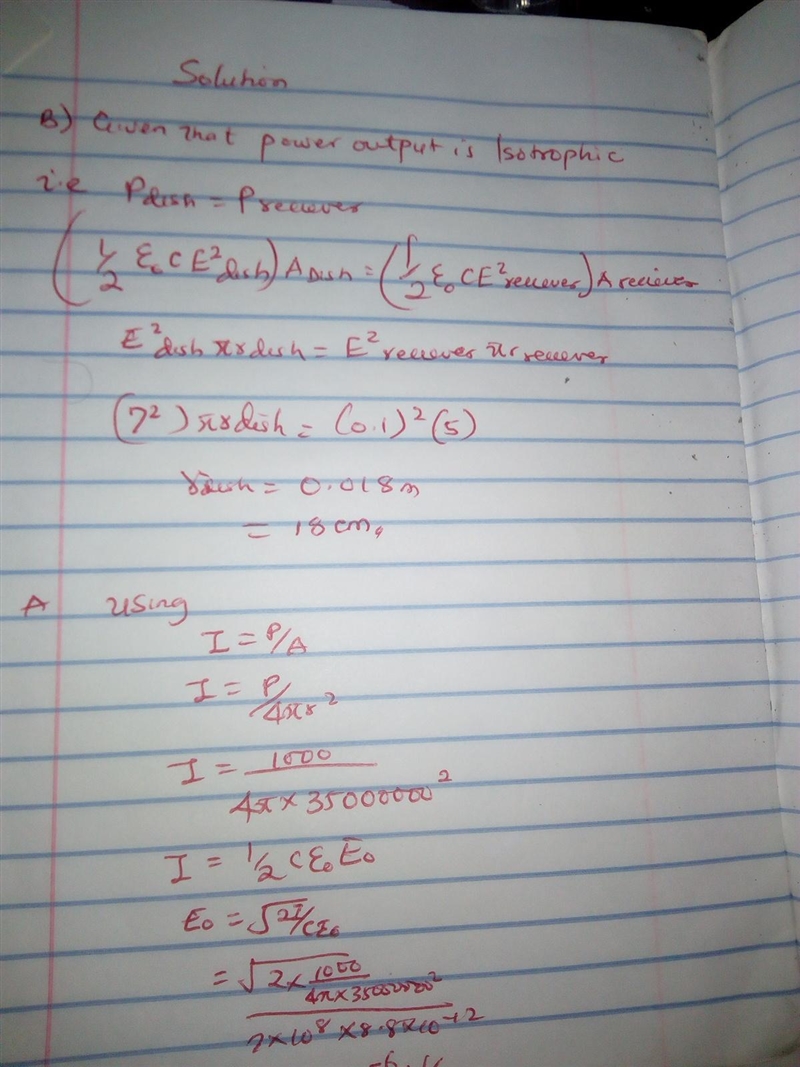 Solution
B) Given that power output is Isotrophic
i.e Pdish = Preciever
(1/2 ε₀ C E²dish) A Dish = (1/2 ε₀ C E² reciever) A reciever
E² dish πr dish = E² reciever πr reciever
(7²) πr dish = (0.1)² (5)
r dish = 0.018m
= 18cm,
A Using
I = P/A
I = P/4πr²
I = 1000/4π × 35000000²
I = 1/2 C ε₀ E₀
E₀ = √2I/Cε₀
= √2 × 1000/4π × 35000000²
× 10⁸ × 8.8 × 10⁻¹²